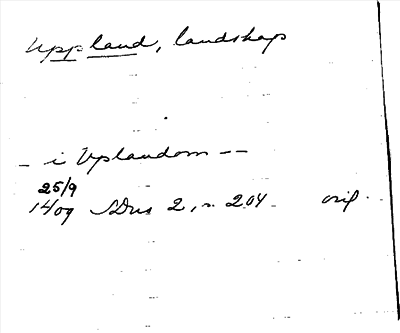 Uppland, landskap
- i Uplandom --
25/9
1409 SDns 2, s. 204. orig.